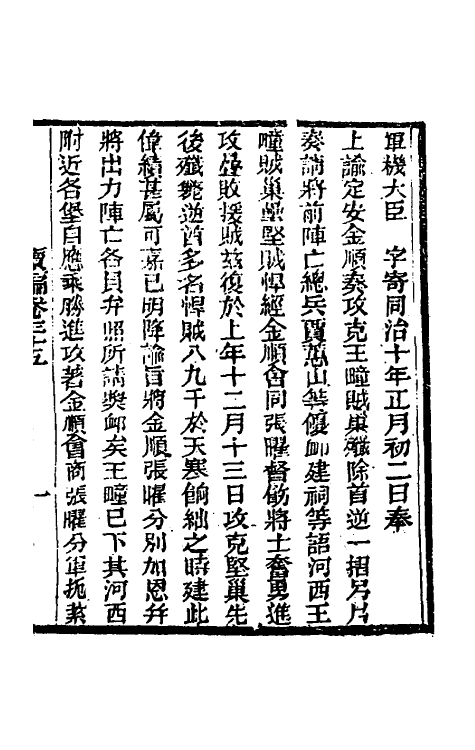 軍機大臣　字寄同治十年正月初二日奉
上諭定安金順奏攻克王疃賊巢殲除首逆一摺另片
奏請將前陣亡總兵賈蔥山等優卹建祠等語河西王
疃賊巢壘堅賊悍經金順會同張曜督飭將士奮勇進
攻疊敗援賊茲復於上年十二月十三日攻克堅巢先
後殲斃逆酋多名悍賊八九千於天寒餉絀之時建此
偉績甚屬可嘉已明降諭旨將金順張曜分別加恩幷
將出力陣亡各員弁照所請奬卹矣王疃已下其河西
附近各堡自應乘勝進攻著金順會商張曜分軍扼紮
續編卷三十五
一